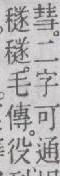 彗。二字可通
穟穟。毛傳。役